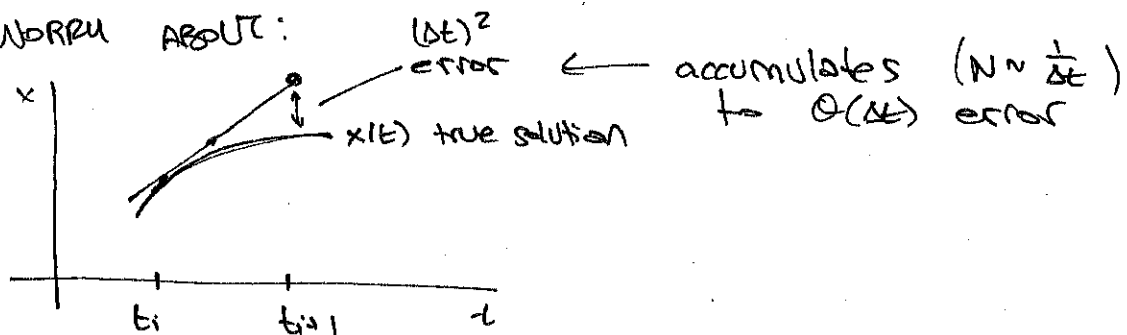 WORRY ABOUT:
(Δt)²
error ← accumulates (N ~ 1/Δt)
to O(Δt) error
x
x(t) true solution
tᵢ tᵢ₊₁ t